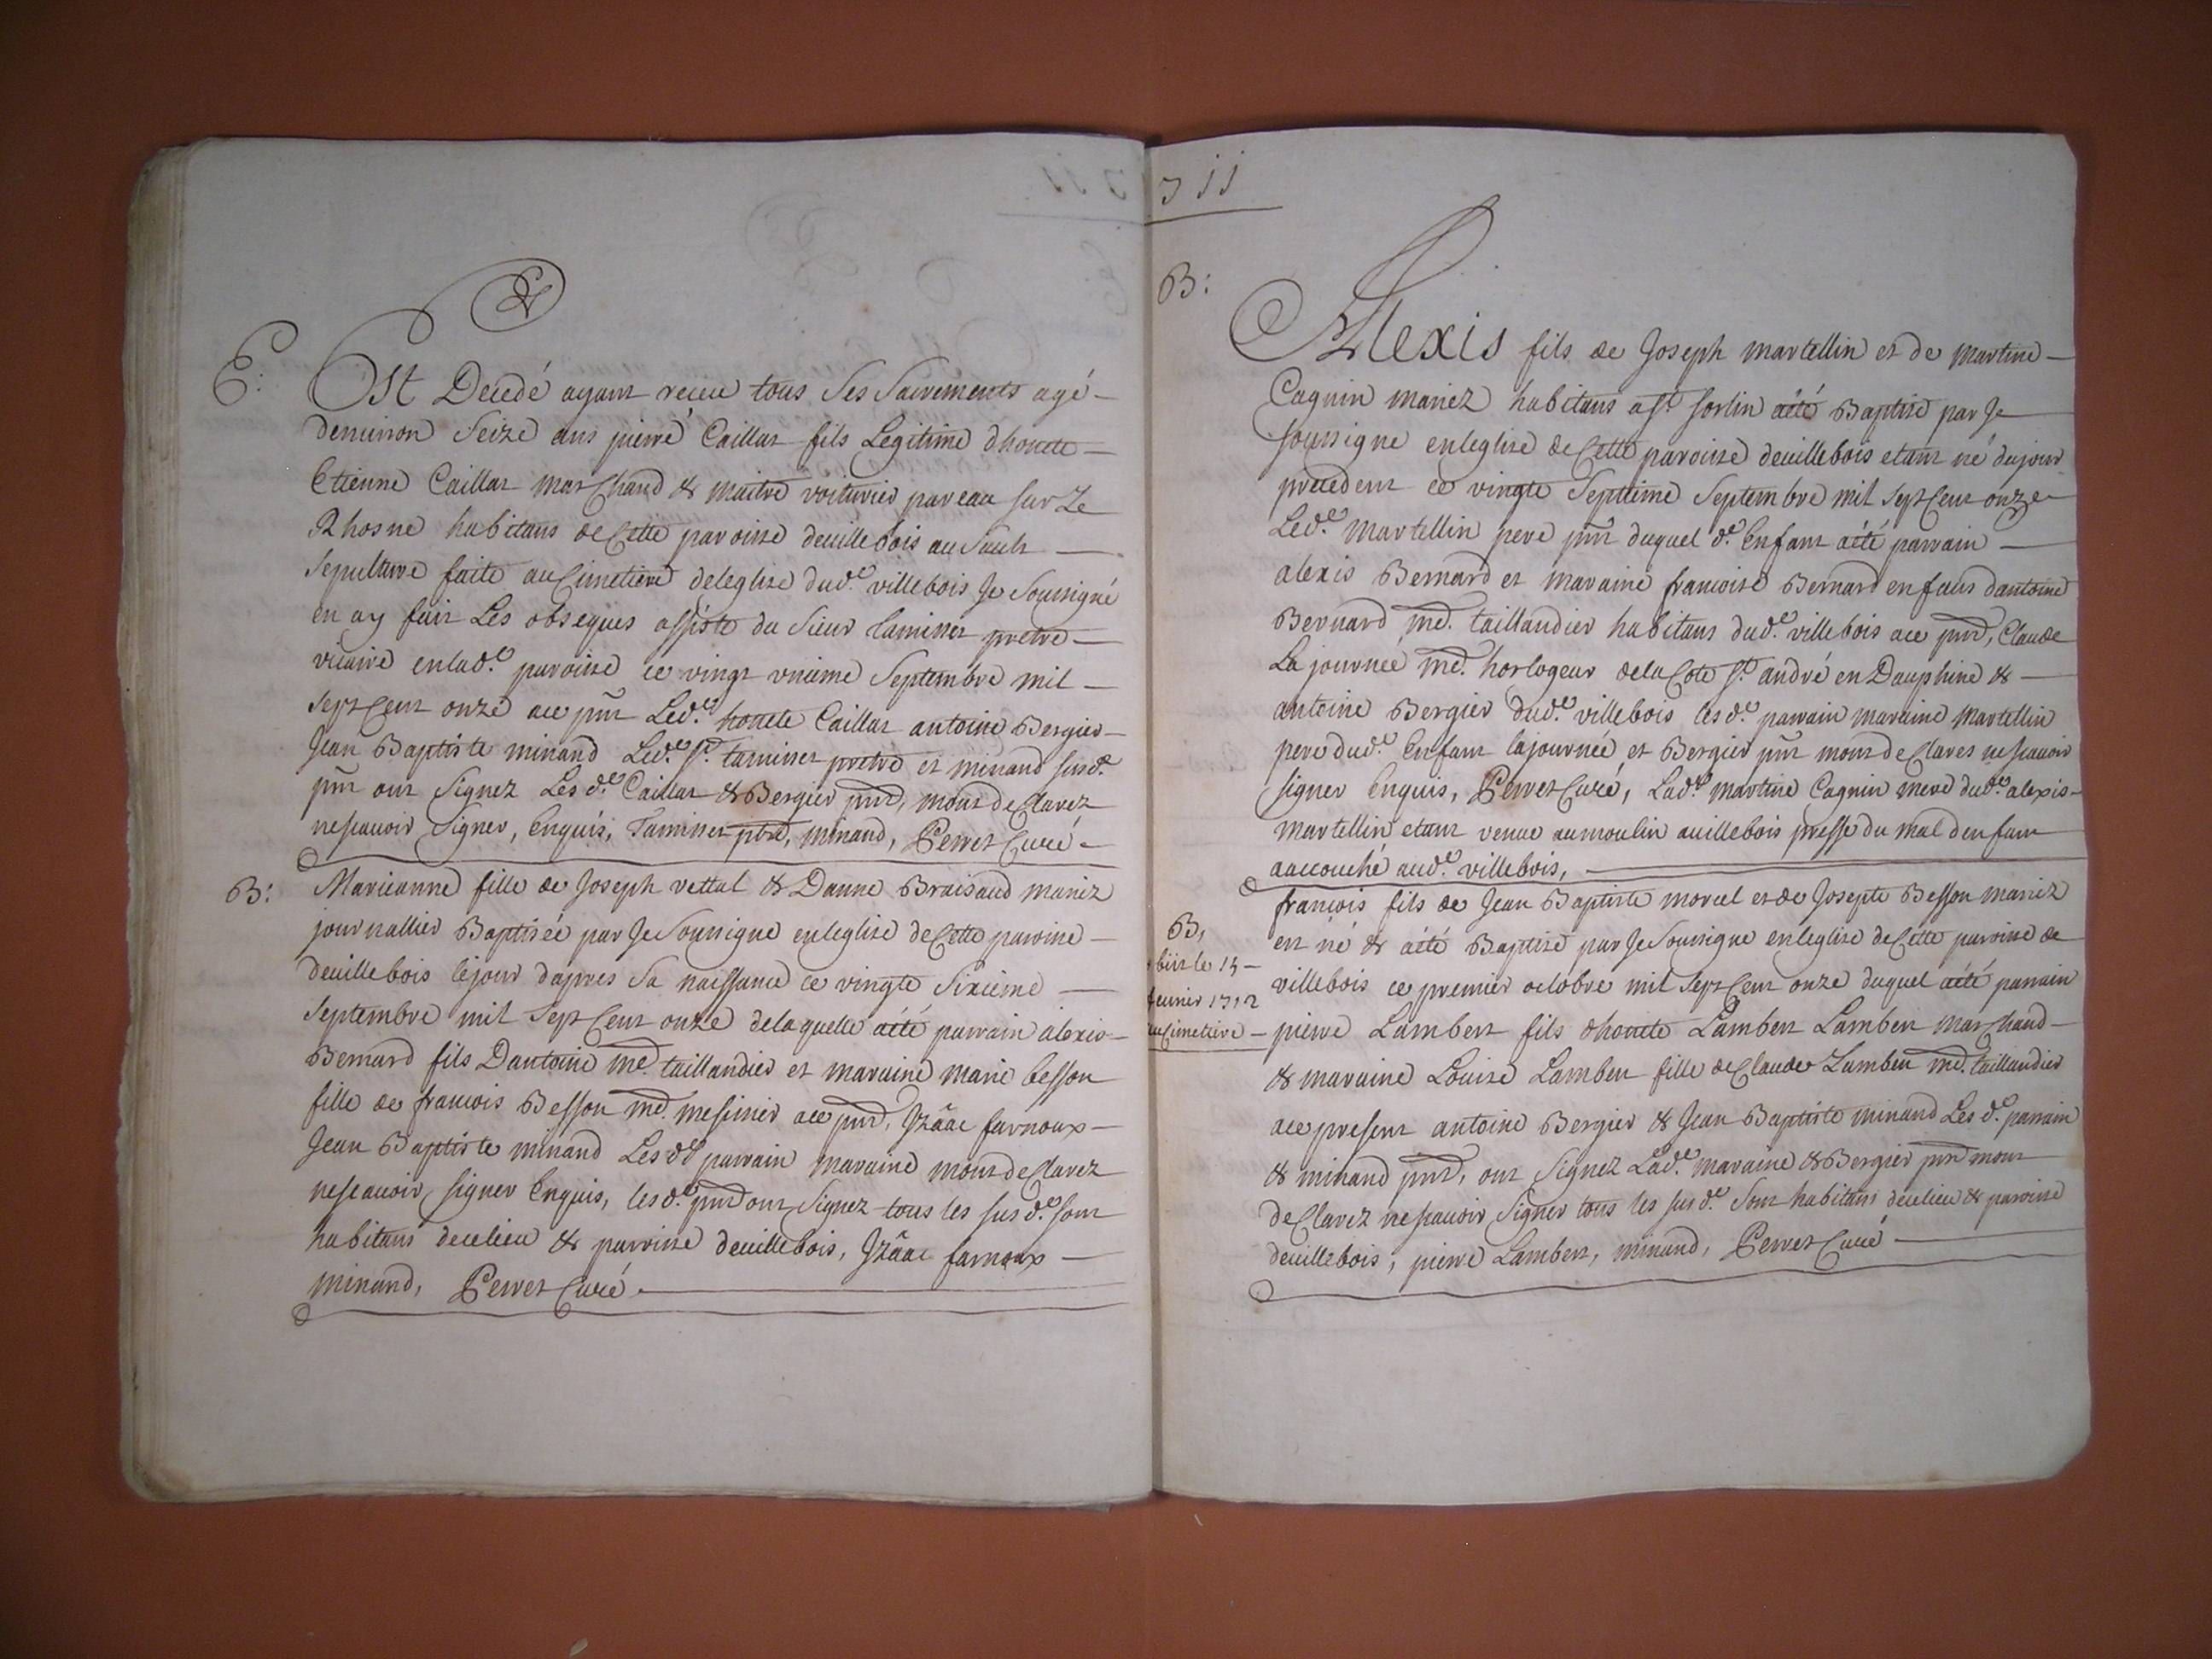 E:
Est Decedé ayant receu tous Ses Sacrements agé
denuiron Seize ans pierre Caillat fils Legitime dhonete
Etienne Caillat Marchand & maitre voiturier par eau sur Le
Rhosne habitans de Cette paroisse deuillebois au Sault
Sepulture faite au Cimetiere deleglise dud.e villebois Je Soussigné
en ay fait Les obseques assisté du Sieur Taminet pretre
vicaire en lad.e paroisse ce vingt vnieme Septembre mil
sept Cent onze ace pnt Led.e honete Caillat antoine Bergier
Jean Baptiste minand Led.e Sr. taminet pretre et minand susd.e
pnt ont Signez Les d.e Caillat & Bergier pnd, mont deClarez
nesçauoir Signer, Enquis, Taminet ptre, minand, Perret Curé
B:
Marieanne fille de Joseph vettal & Danne Braisaud mariez
journallier Baptisée par Je Soussigne enleglise deCette paroisse
deuillebois lejour dapres Sa naissance ce vingte Sixieme
Septembre mil Sept Cent onze delaquelle aété parrain alexis
Bernard fils Dantoine md. taillandier et maraine marie besson
fille de francois Besson md. messinier ace pnd, Jzâac farnoux
Jean Baptiste minand Les d.e parrain maraine mont deClarez
nesçauoir signer Enquis, les d.e pnd ont Signez tous les sus d.e sont
habitans decelieu & paroisse deuillebois, Jzâac farnoux
minand, Perret Curé
711
B:
Alexis fils de Joseph martellin et de martine
Cagnin mariez habitans a St. sorlin aété Baptisé par Je
soussigne enleglise deCette paroisse deuillebois etant né dujour
precedent ce vingte Septieme Septembre mil sept Cent onze
Led.e Martellin pere pnt duquel d.e Enfant aété parrain
alexis Bernard et maraine francoise Bernard enfans dantoine
Bernard md. taillandier habitans dud.e villebois ace pnd, Claude
La journée md. horlogeur dela Cote St. andré en Dauphiné &
antoine Bergier dud.e villebois les d.e parrain maraine Martellin
pere dud.e Enfant lajournée et Bergier pnt mont deClarez nesçauoir
signer Enquis, Perret Curé, Lad.e martine Cagnin mere dud.e alexis
martellin etant venue aumoulin auillebois pressé du mal denfant
aaccouché aud.e villebois,
B,
obiit le 15
feurier 1712
au Cimetiere
francois fils de Jean Baptiste morcel et de Josepte Besson mariez
est né & aété Baptisé par Je Soussigne enleglise deCette paroisse de
villebois ce premier octobre mil Sept Cent onze duquel aété parrain
pierre Lambert fils dhonete Lambert Lambert Marchand
& maraine Louise Lambert fille deClaude Lambert md. taillandier
ace present antoine Bergier & Jean Baptiste minand Les d.e parrain
& minand pnd, ont Signez Lad.e maraine & Bergier pnd mont
deClarez nesçauoir Signer tous les sus d.e Sont habitans decelieu & paroisse
deuillebois, pierre Lambert, minand, Perret Curé